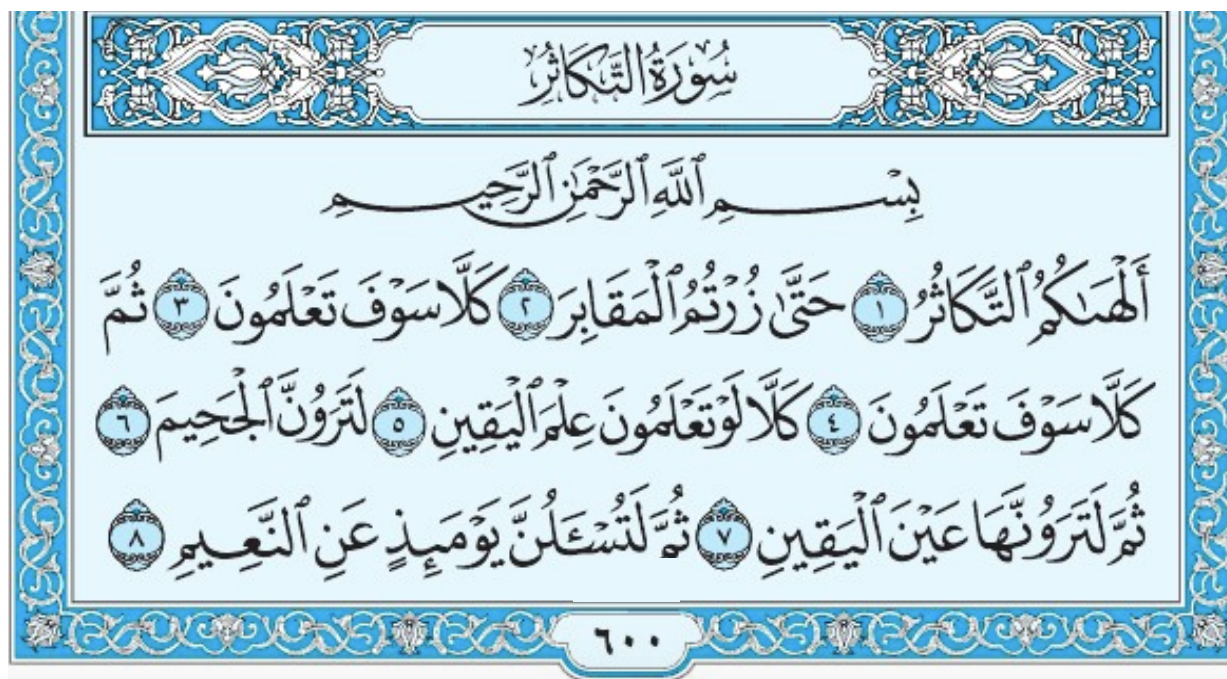 سُورَةُ التَّكَاثُرِ
بِسْمِ ٱللَّهِ ٱلرَّحْمَٰنِ ٱلرَّحِيمِ
أَلْهَىٰكُمُ ٱلتَّكَاثُرُ ١ حَتَّىٰ زُرْتُمُ ٱلْمَقَابِرَ ٢ كَلَّا سَوْفَ تَعْلَمُونَ ٣ ثُمَّ
كَلَّا سَوْفَ تَعْلَمُونَ ٤ كَلَّا لَوْ تَعْلَمُونَ عِلْمَ ٱلْيَقِينِ ٥ لَتَرَوُنَّ ٱلْجَحِيمَ ٦
ثُمَّ لَتَرَوُنَّهَا عَيْنَ ٱلْيَقِينِ ٧ ثُمَّ لَتُسْـَٔلُنَّ يَوْمَئِذٍ عَنِ ٱلنَّعِيمِ ٨
٦٠٠